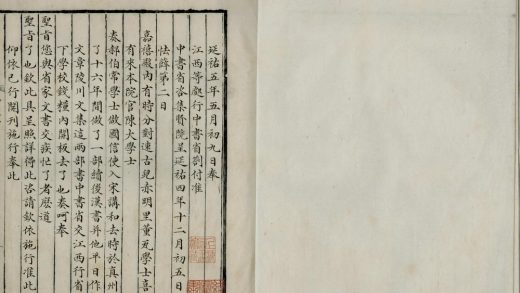 延祐五年五月初九日奉
江西等處行中書省劄付准
中書省咨集賢院呈延祐四年十二月初五日
怯薛第二日
嘉禧殿內有時分對速古兒赤明里董瓦學士喜
有來本院官陳大學士
奏郝伯常學士做國信使入宋講和去時於真州
了十六年間做了一部續後漢書并他平日作
文章陵川文集這兩部書中書省交江西行省
下學校錢糧內開板去了也奏呵奉
聖旨您與省家文書交疾忙了者麽道
聖旨了也欽此具呈照詳得此咨請欽依施行准此
仰依已行開刊施行奉此